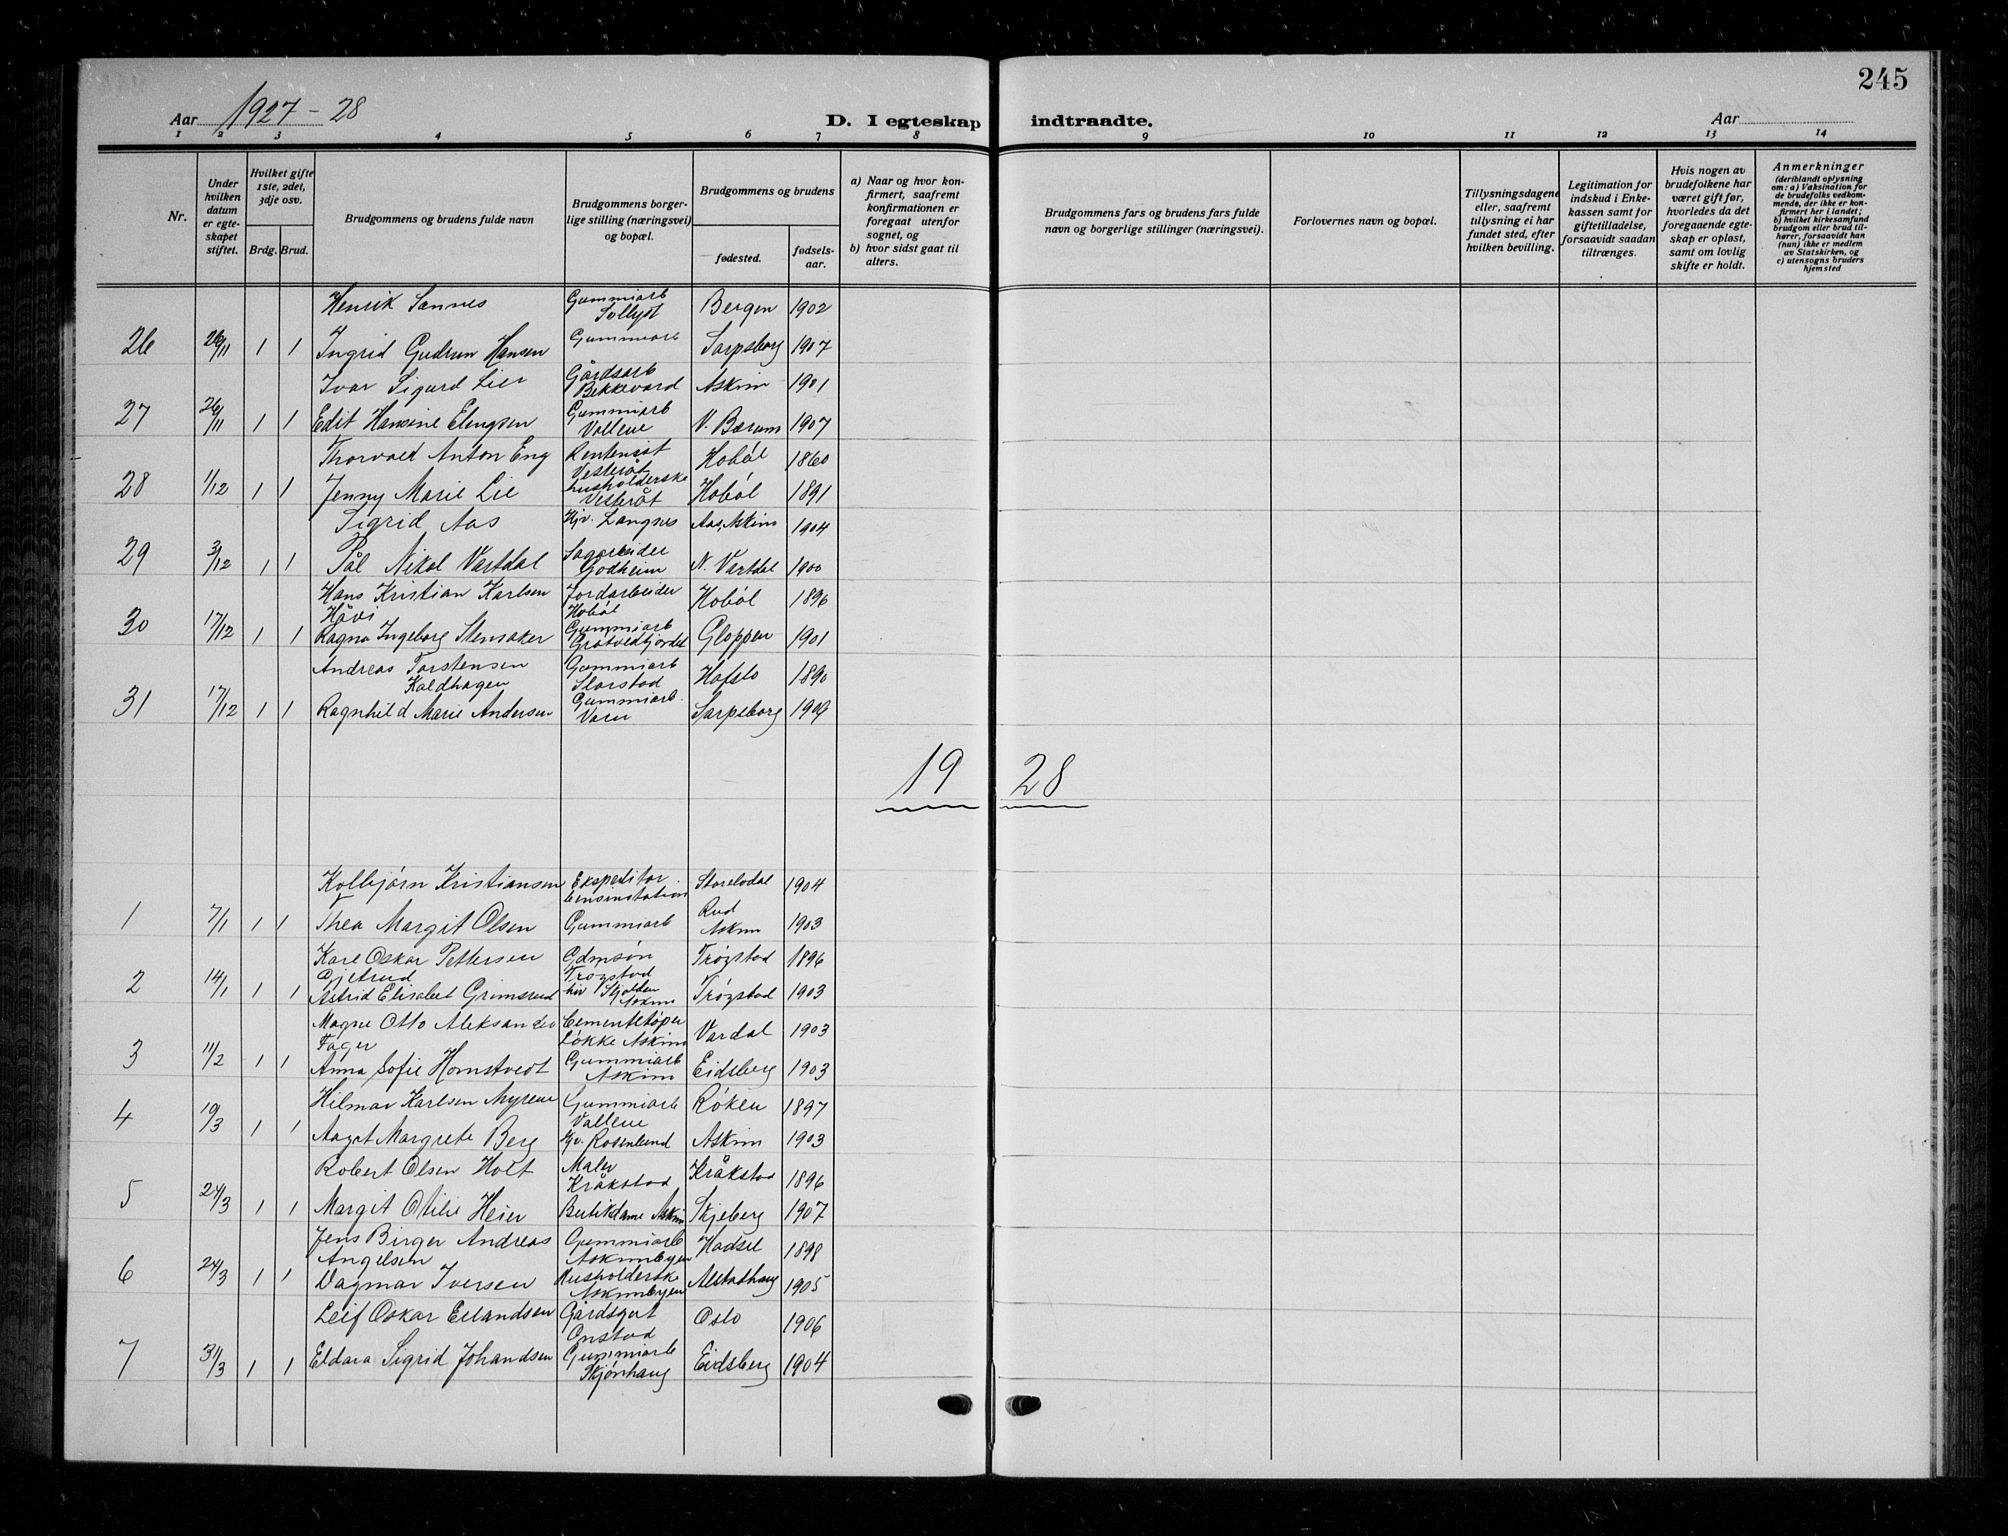 245
Aar 1927 - 28
D. I egteskap indtraadte.
Aar
1 2 3 4 5 6 7 8 9 10 11 12 13 14
Nr.
Under hvilken datum er egteskapet stiftet.
Hvilket gifte 1ste, 2det, 3dje osv.
Brdg. Brud.
Brudgommens og brudens fulde navn
Brudgommens borgerlige stilling (næringsvei) og bopæl.
Brudgommens og brudens
fødested.
fødselsaar.
a) Naar og hvor konfirmert, saafremt konfirmationen er foregaat utenfor sognet, og
b) hvor sidst gaat til alters.
Brudgommens fars og brudens fars fulde navn og borgerlige stillinger (næringsvei).
Forlovernes navn og bopæl.
Tillysningsdagene eller, saafremt tillysning ei har fundet sted, efter hvilken bevilling.
Legitimation for indskud i Enkekassen samt for giftetilladelse, forsaavidt saadan tiltrænges.
Hvis nogen av brudefolkene har været gift før, hvorledes da det foregaaende egteskap er opløst, samt om lovlig skifte er holdt.
Anmerkninger
(deriblandt oplysning om: a) Vaksination for de brudefolks vedkommende, der ikke er konfirmert her i landet; b) hvilket kirkesamfund brudgom eller brud tilhører, forsaavidt han (hun) ikke er medlem av Statskirken, og c) utensogns bruders hjemsted
Henrik Sannes Gummiarb Sollyst Bergen 1902
26 26/11 1 1 Ingrid Gudrun Hansen Gummiarb Sarpsborg 1907
Ivar Sigurd Lier Gårdsarb Bekkevard Askim 1901
27 26/11 1 1 Edit Hansine Elingsen Gummiarb Vollene V. Bærum 1907
Thorvald Anton Eng Rentenist Vesteråt Hobøl 1860
28 1/12 1 1 Jenny Marie Lie husholderske Vesteråt Hobøl 1891
Sigrid Aas Hjv. Langnes Aas, Askim 1904
29 3/12 1 1 Pål Nikol Vartdal Sagarbeider Godheim N. Vartdal 1900
Hans Kristian Karlsen Jordarbeider Hobøl 1896
Håvi Hobøl
30 17/12 1 1 Ragna Ingeborg Stensaker Gummiarb Grøtvedtjordet Gloppen 1901
Andreas Torstensen Gummiarb Hafslo 1890
Kaldhagen Storstad
31 17/12 1 1 Ragnhild Marie Andersen Gummiarb. Sarpsborg 1909
19 28
Kolbjørn Kristiansen Ekspeditor bensinstation Storelvdal 1904
1 7/1 1 1 Thea Margit Olsen Gummiarb Rud Askim 1903
Kare Oskar Pettersen Gdmsøn Trøgstad 1896
Gjetrud Trøgstad
2 14/1 1 1 Astrid Elisabet Grimsrud hjv Skjolden Askim Trøgstad 1903
Magne Otto Aleksander Cementstøper Vardal 1903
Fager Løkke Askim
3 11/2 1 1 Anna Sofie Hornstvedt Gummiarb Askim Eidsberg 1903
Hilmar Karlsen Myrene Gummiarb Vollene Røken 1897
4 10/3 1 1 Aagot Margrete Berg hjv. Rosenlund Askim 1903
Robert Olsen Holt Maler Kråkstad Kråkstad 1896
5 24/3 1 1 Margit Otilie Heier Butikdame Askim Skjeberg 1907
Jens Birger Andreas Gummiarb Hadsel 1898
Angelsen Askimbyen
6 24/3 1 1 Dagmar Iversen Husholderske Askimbyen Alstadhaug 1905
Leif Oskar Erlandsen Gårdsgut Onstad Oslo 1906
7 31/3 1 1 Eldara Sigrid Johandsen Gummiarb Skjørhaug Eidsberg 1904